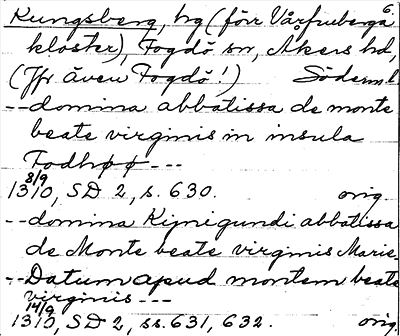 6.
Kungsberg, hg (förr Vårfruberga
kloster), Fogdö sn, Åkers hd,
(Jfr även Fogdö!) Söderml
-- domina abbatissa de monte
beate virginis in insula
Fodhøø ---
8/9
1310, SD 2, s. 630. orig.
-- domina Kynigundi abbatissa
de Monte beate virginis Marie-
-- Datum apud montem beate
virginis ---
14/9
1310, SD 2, ss. 631, 632. orig